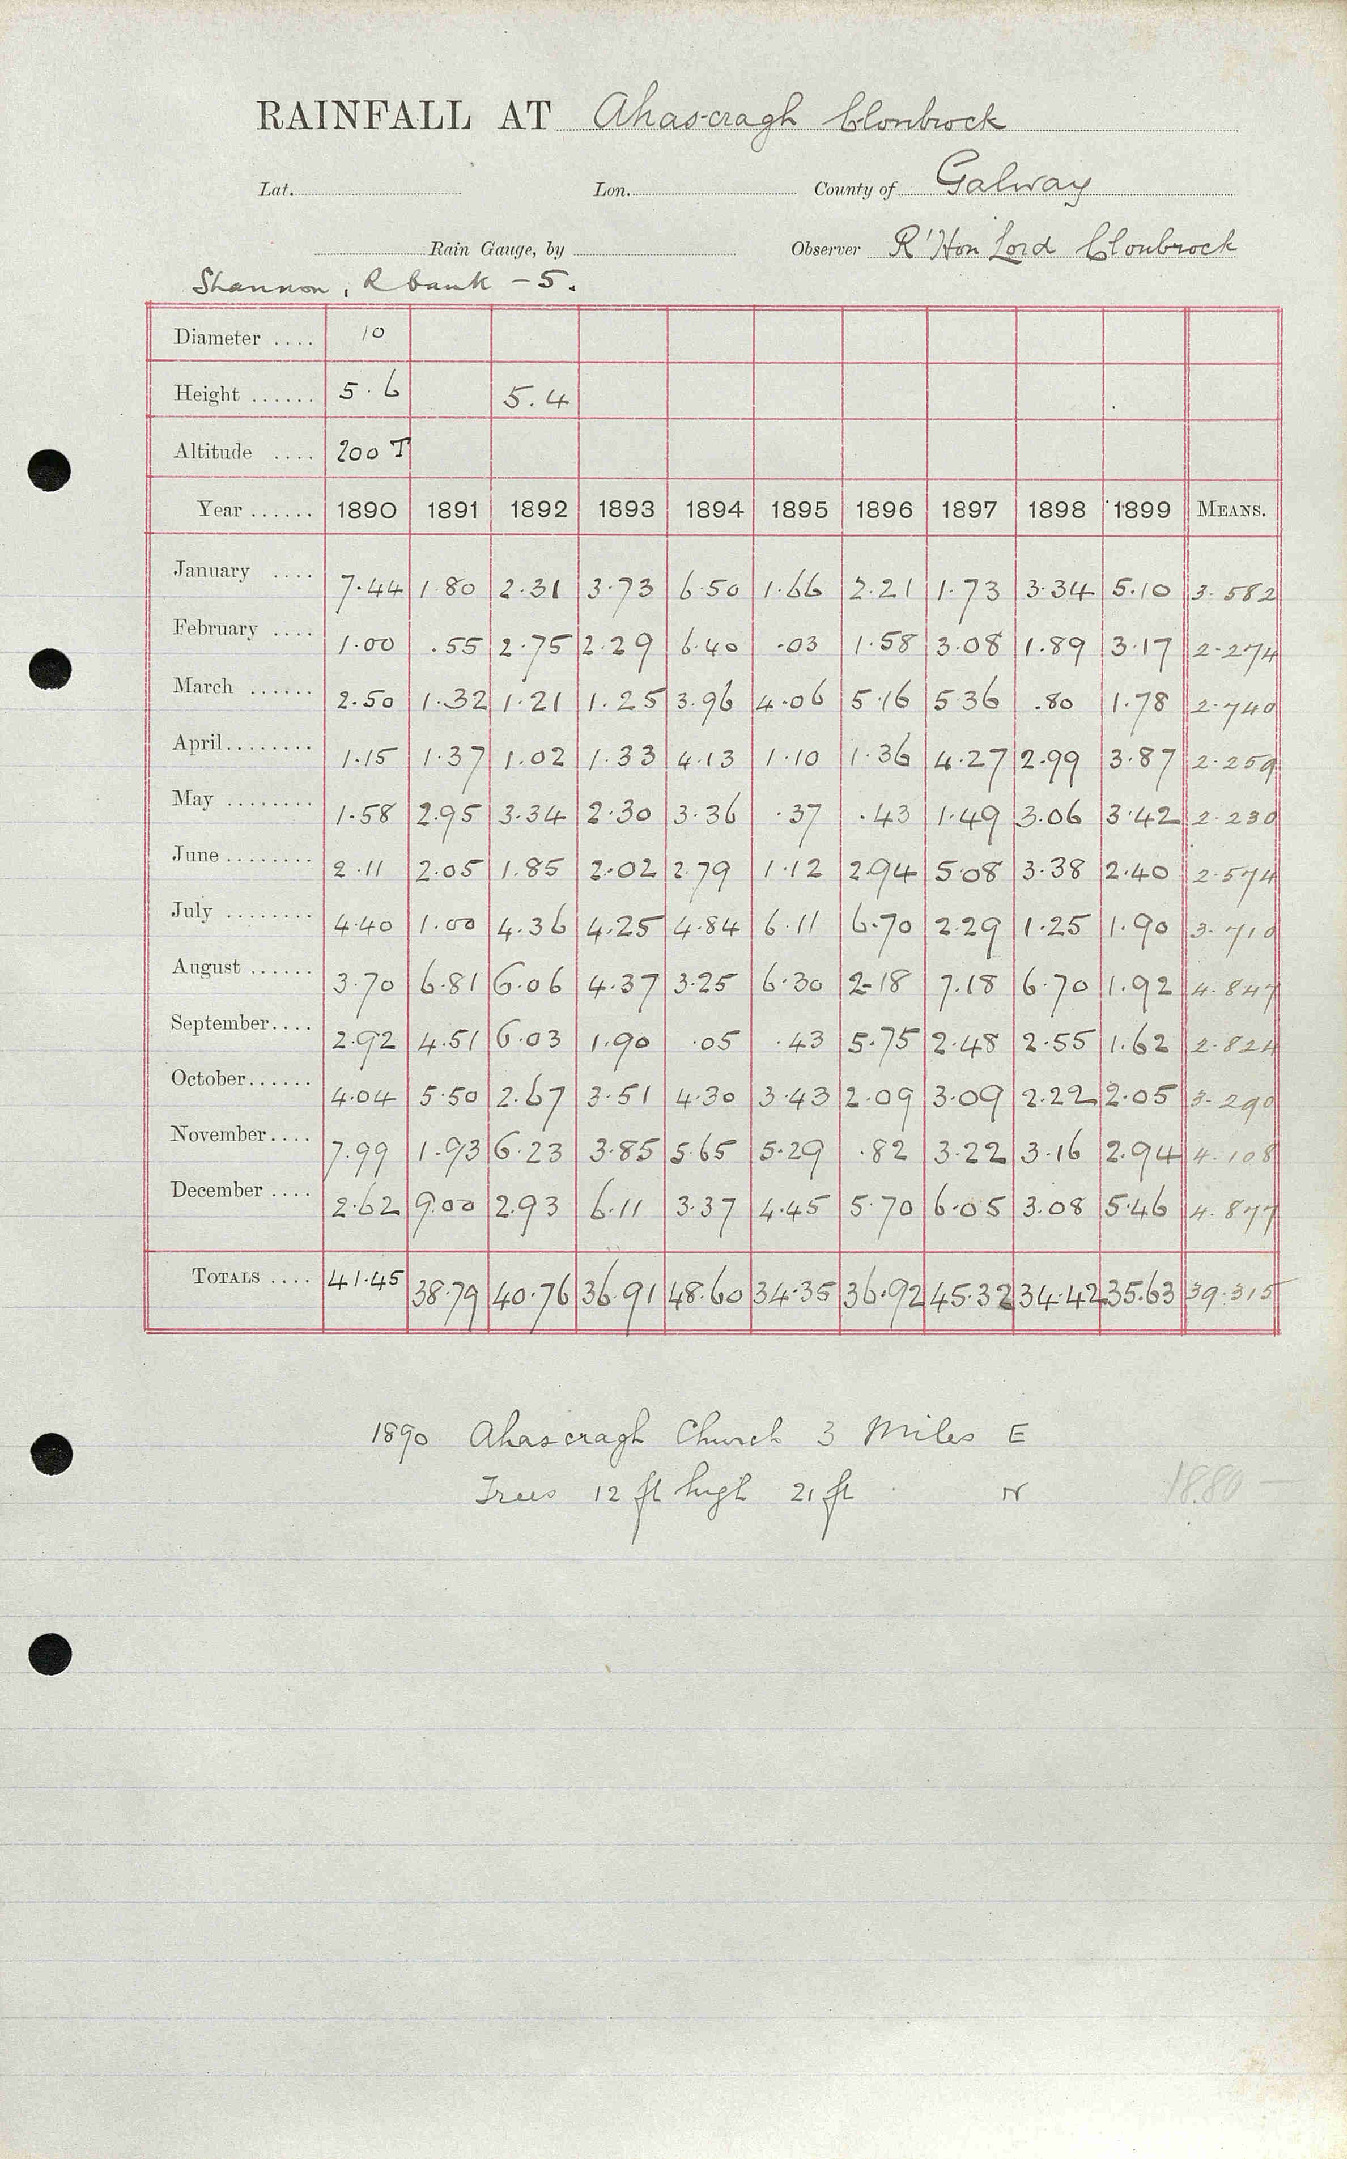 RAINFALL AT Ahascragh Clonbrock
Lat. Lon. County of Galway
Rain Gauge, by Observer Rt Hon Lord Clonbrock
Shannon, R bank – 5.
Diameter .... 10
Height ...... 5.6 5.4
Altitude .... 200 T
Year ...... 1890 1891 1892 1893 1894 1895 1896 1897 1898 1899 MEANS.
January .... 7.44 1.80 2.31 3.73 6.50 1.66 2.21 1.73 3.34 5.10 3.582
February .... 1.00 .55 2.75 2.29 6.40 .03 1.58 3.08 1.89 3.17 2.274
March ...... 2.50 1.32 1.21 1.25 3.96 4.06 5.16 5.36 .80 1.78 2.740
April........ 1.15 1.37 1.02 1.33 4.13 1.10 1.36 4.27 2.99 3.87 2.259
May ........ 1.58 2.95 3.34 2.30 3.36 .37 .43 1.49 3.06 3.42 2.230
June ........ 2.11 2.05 1.85 2.02 2.79 1.12 2.94 5.08 3.38 2.40 2.574
July ........ 4.40 1.00 4.36 4.25 4.84 6.11 6.70 2.29 1.25 1.90 3.710
August ...... 3.70 6.81 6.06 4.37 3.25 6.30 2.18 7.18 6.70 1.92 4.847
September.... 2.92 4.51 6.03 1.90 .05 .43 5.75 2.48 2.55 1.62 2.824
October...... 4.04 5.50 2.67 3.51 4.30 3.43 2.09 3.09 2.22 2.05 3.290
November.... 7.99 1.93 6.23 3.85 5.65 5.29 .82 3.22 3.16 2.94 4.108
December .... 2.62 9.00 2.93 6.11 3.37 4.45 5.70 6.05 3.08 5.46 4.877
TOTALS .... 41.45 38.79 40.76 36.91 48.60 34.35 36.92 45.32 34.42 35.63 39.315
1890 Ahascragh Church 3 Miles E
Trees 12 ft high 21 ft N
1880 —